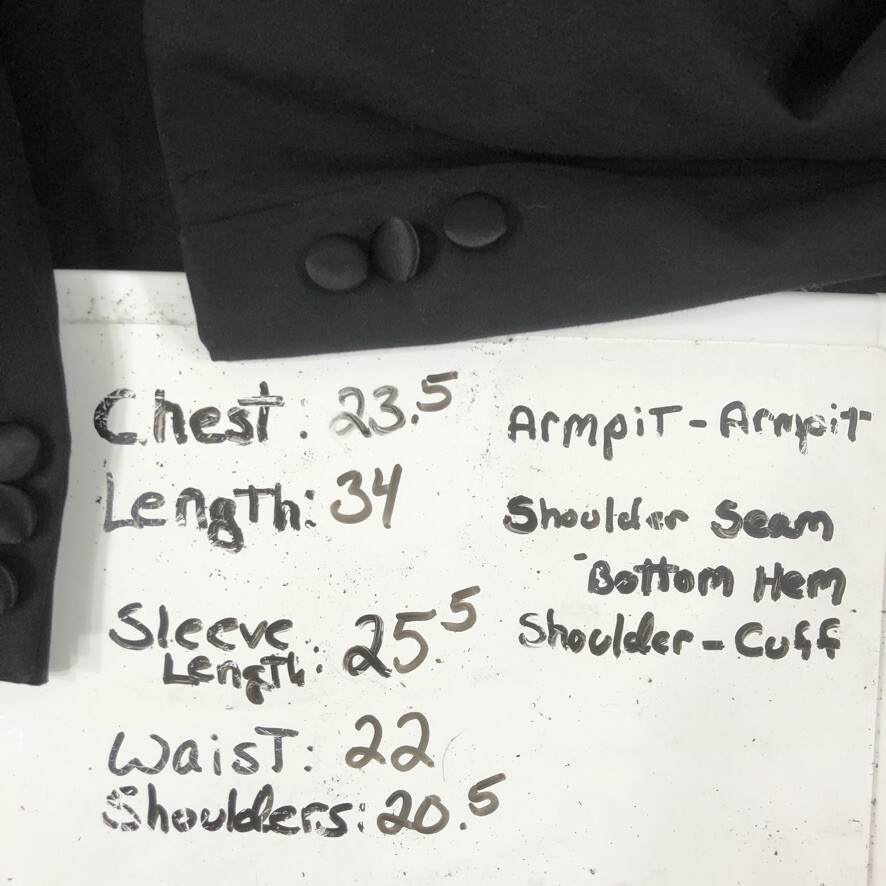 Chest: 23.5 Armpit-Armpit
Length: 34 Shoulder Seam
-Bottom Hem
Sleeve Length: 25 5 Shoulder-Cuff
Waist: 22
Shoulders: 20.5